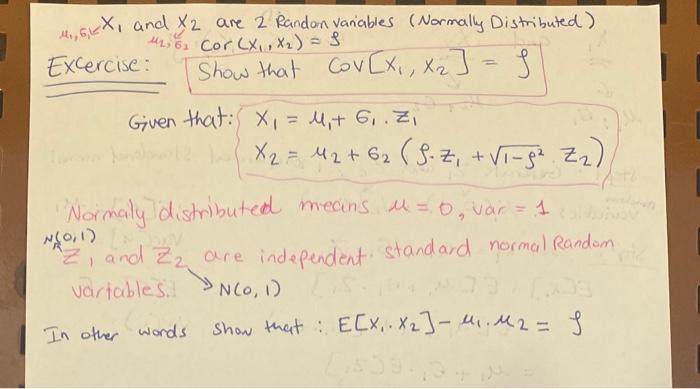 X₁ and X₂ are 2 Random variables (Normally Distributed)
μ₁, σ₁ μ₂, σ₂ Cor(X₁, X₂) = ρ
Excercise: Show that Cov[X₁, X₂] = ρ
Given that: X₁ = μ₁ + σ₁. Z₁
X₂ = μ₂ + σ₂ (ρ. Z₁ + √1-ρ² Z₂)
Normaly distributed means μ = 0, var = 1
N(0,1)
Z₁ and Z₂ are independent standard normal Random
variables. N(0,1)
In other words show that : E[X₁. X₂] - μ₁. μ₂ = ρ